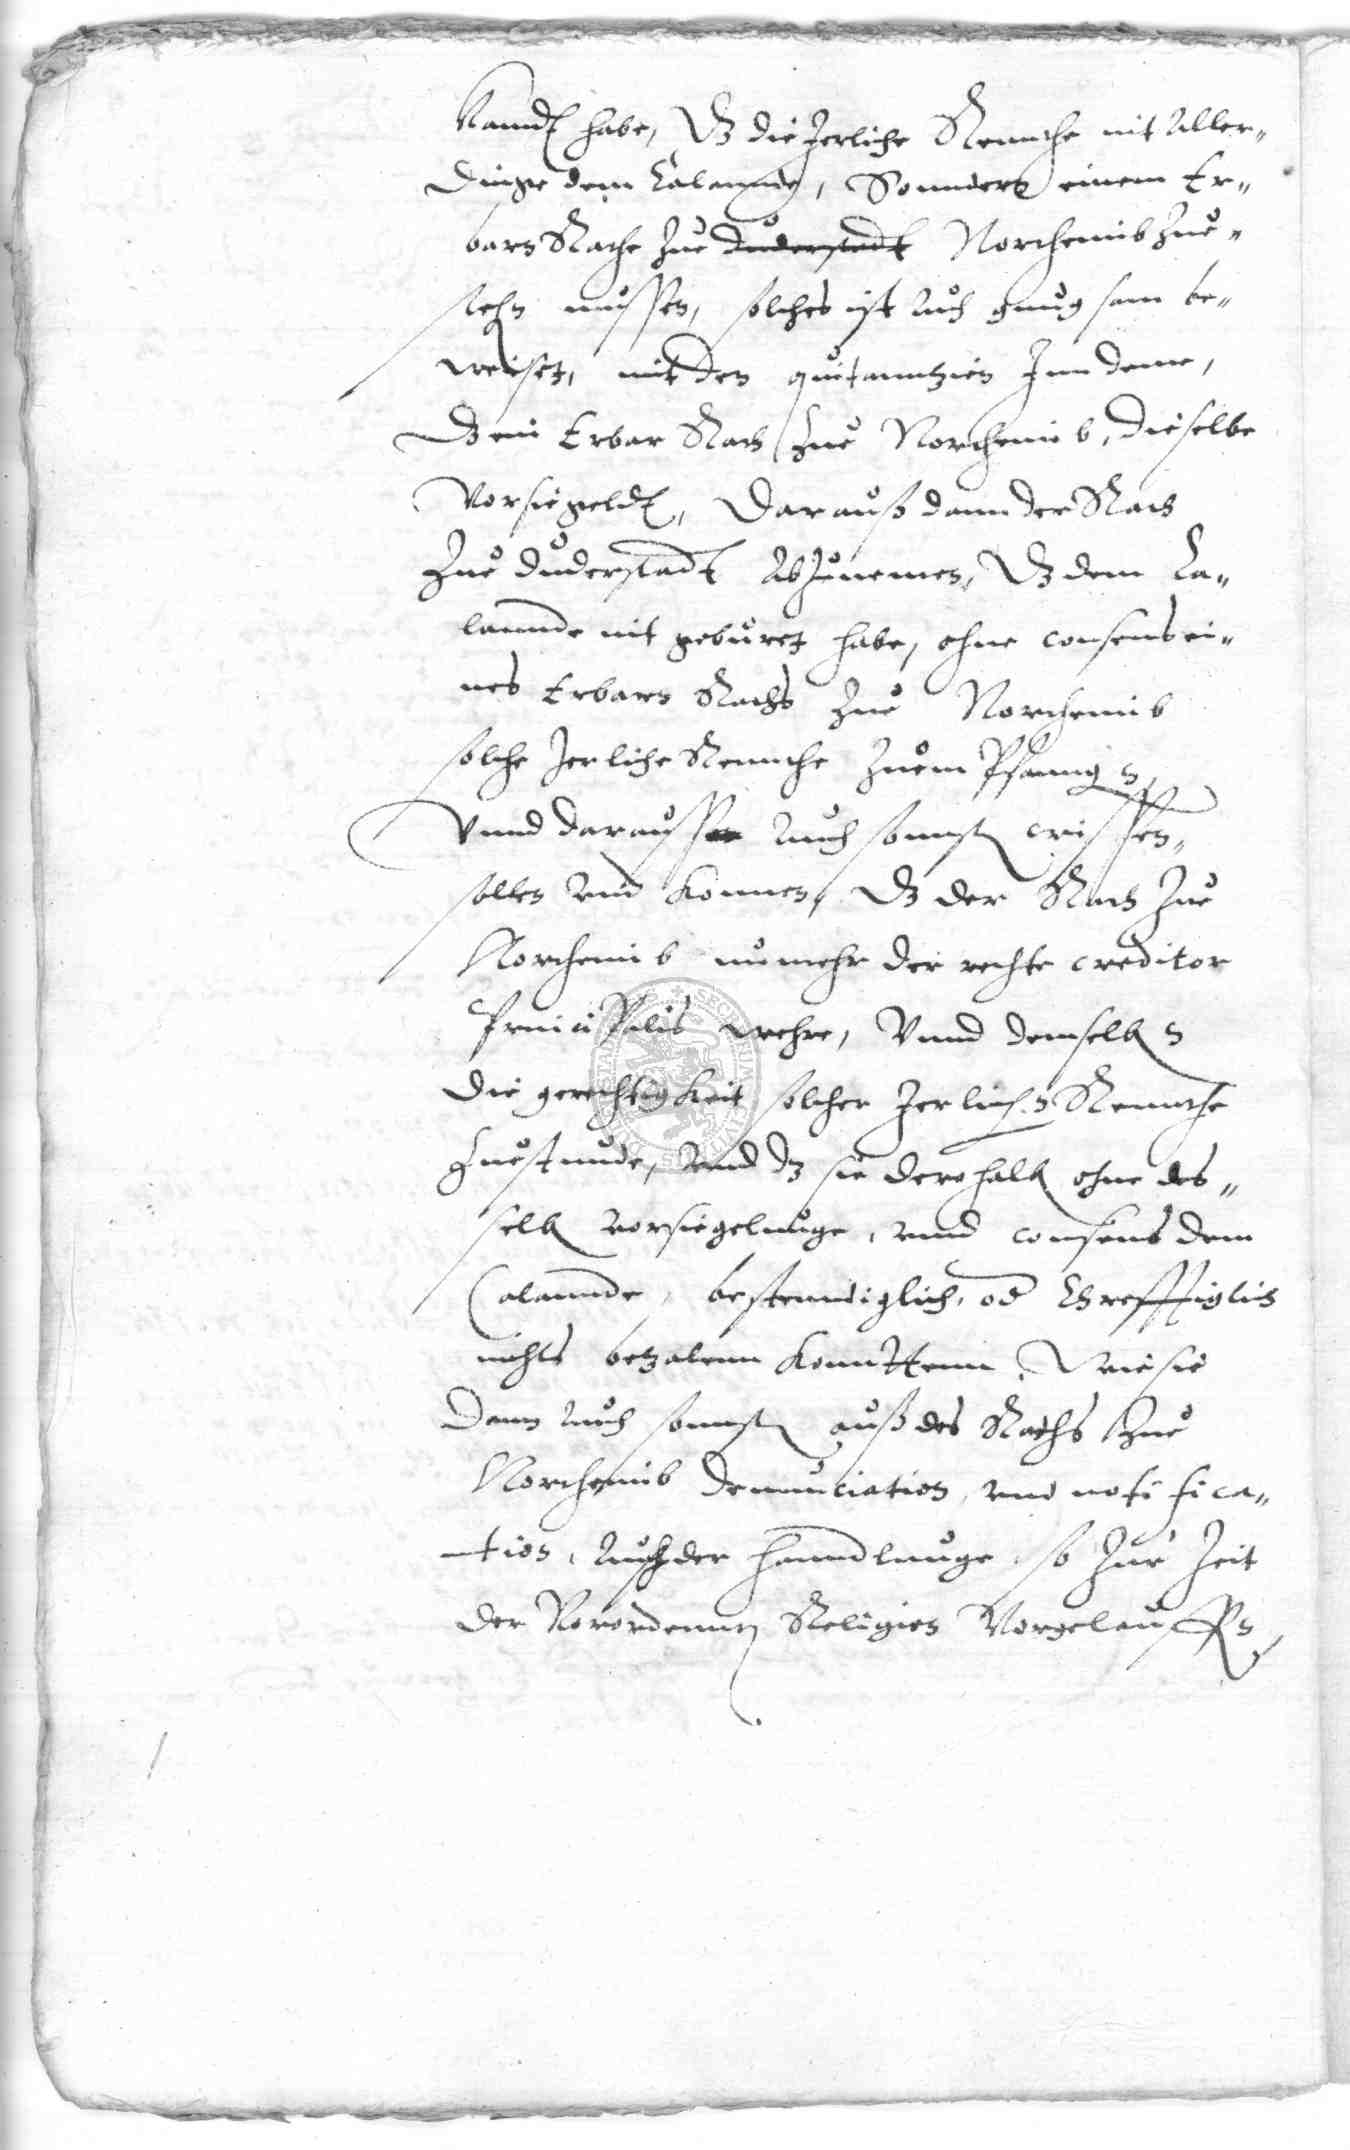 kandt habe, dz die Jerliche Rennthe nit Aller„
dinge dem Calannde, Sonndern einem Er„
barn Rathe zue duderstadt Northemib zue„
stehn mussen, solches ist Auch gnugsam be„
weiset, mit den quitanntzien Inn deme,
dz ein Erbar Rath zue Northemib, dieselbe
Vorsiegeldt, Darauß dann der Rath
zue duderstadt Abzunemen, dz dem Ca„
lannde nit geburet habe, ohne consens ei„
nes Erbarn Raths zue Northemib
solche Jerliche Rennthe zuem
Vnnd darauss Auch sonnst wissen„
sollen vnd konnen, dz der Rath zue
Northemib numehr der rechte creditor
Principalis wehre, Vnnd demselben
die gerechtigkeit solcher Jerlichen Rennthe
zuestunde, vnnd dz sie derohalb ohne des„
selb vorsiegelunge, vnnd consens dem
Calannde, bestenndiglich, od
nichts betzalenn konnttenn, Wie sie
dann Auch sonnst auß des Raths zue
Northemib denunciation, vnd notifica„
tion, Auch der hanndlunge so zur Zeit
der Verordennten Religion Vorgelauffen